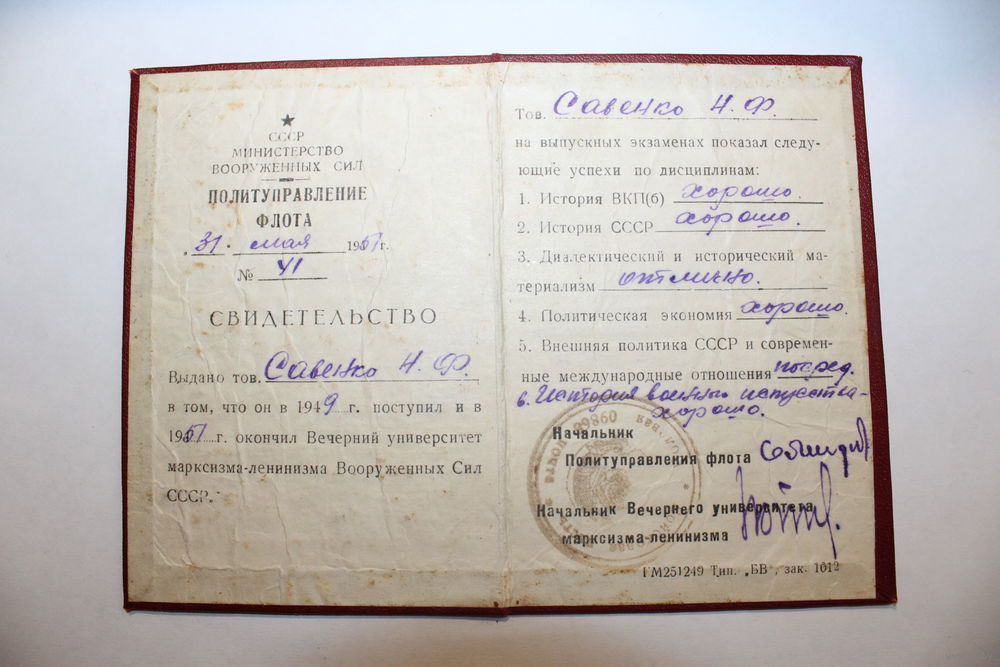 СССР
МИНИСТЕРСТВО
ВООРУЖЕННЫХ СИЛ
ПОЛИТУПРАВЛЕНИЕ
ФЛОТА
„31. мая 1951 г.
№ 41
СВИДЕТЕЛЬСТВО
Выдано тов. Савенко Н. Ф.
в том, что он в 1949 г. поступил и в
1951 г. окончил Вечерний университет
марксизма-ленинизма Вооруженных Сил
СССР.
Тов. Савенко Н. Ф.
на выпускных экзаменах показал следу-
ющие успехи по дисциплинам:
1. История ВКП(б) хорошо.
2. История СССР хорошо.
3. Диалектический и исторический ма-
териализм отлично.
4. Политическая экономия хорошо.
5. Внешняя политика СССР и современ-
ные международные отношения посред.
6. История военны искусства-
хорошо.
Начальник
Политуправления флота
Начальник Вечернего университета
марксизма-ленинизма
ГМ251249 Тип. „БВ", зак. 1012